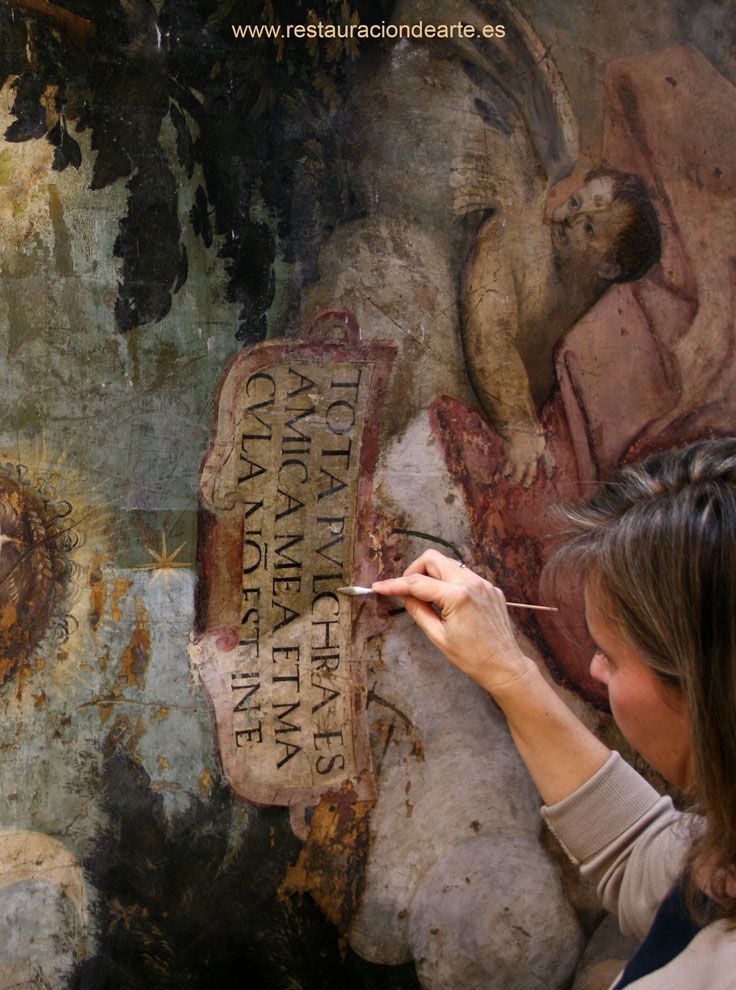 www.restauraciondearte.es
TOTA PVLCHRA ES
AMICA MEA ET MA
CVLA NŌ EST IN E